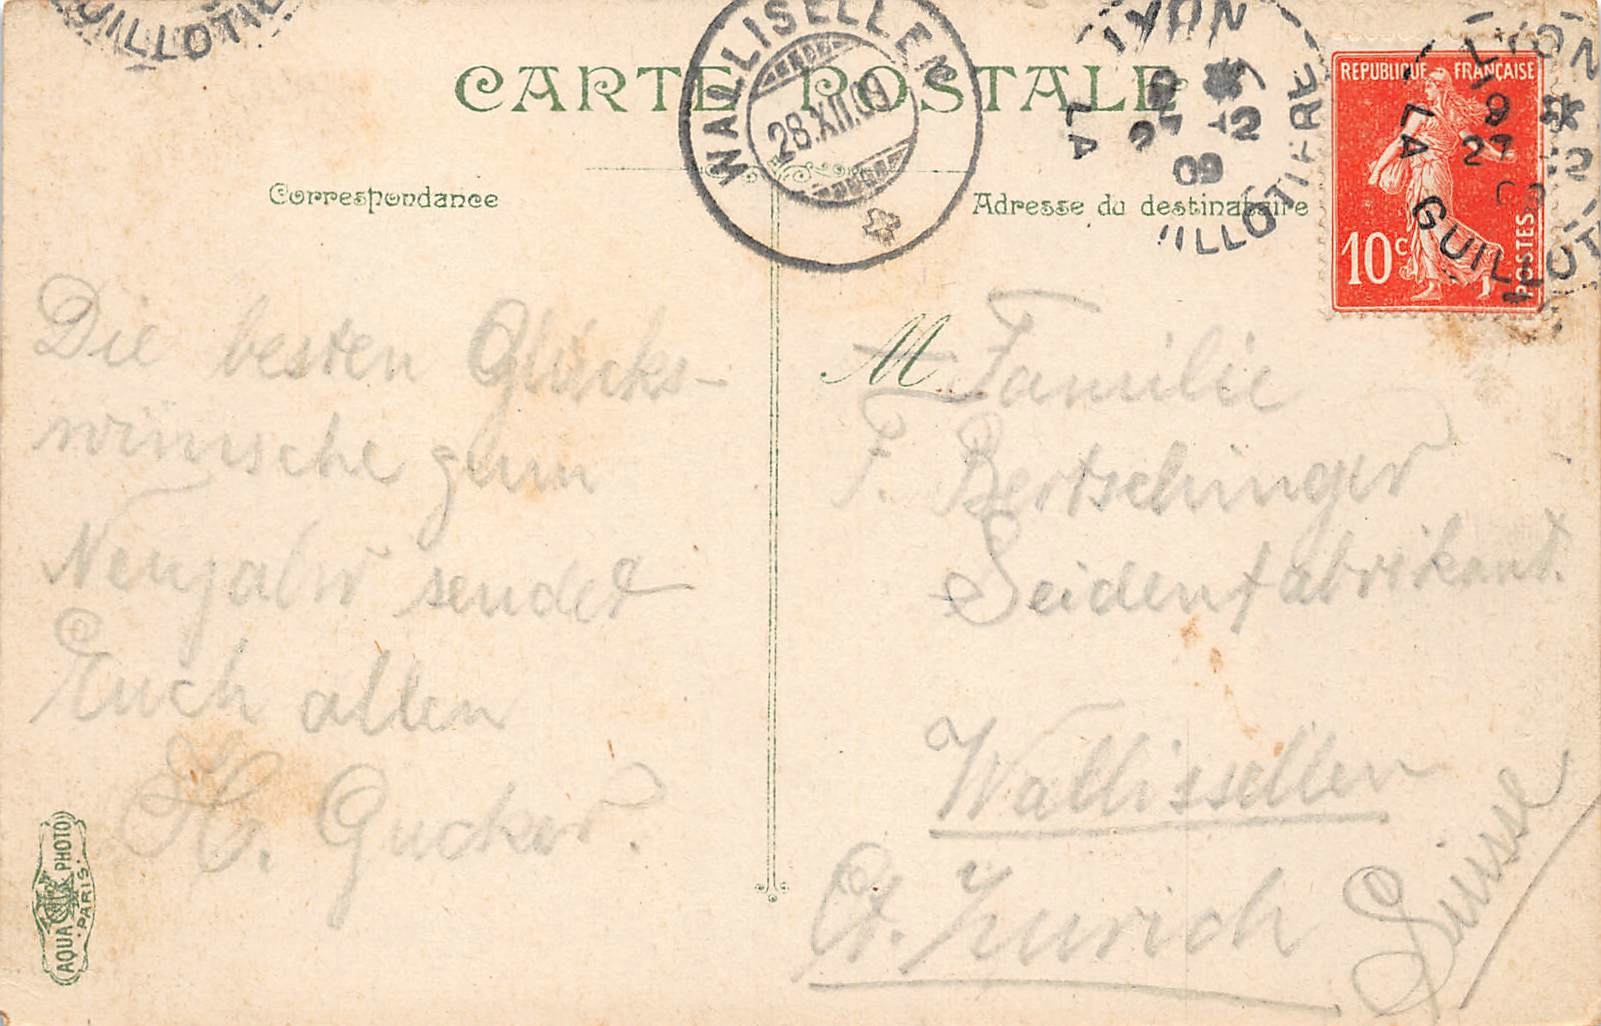 GUILLOTIE
WALLISELLEN
28.XII.09
LYON
27
12
09
LA GUILLOTIERE
LYON
9
27
12
LA GUILLOT
REPUBLIQUE FRANÇAISE
10c
POSTES
CARTE POSTALE
Correspondance
Adresse du destinataire
Die besten Glücks-
wünsche zum
Neujahr sendet
Euch allen
H. Gucker.
M Familie
F. Bertschinger
Seidenfabrikant.
Wallissellen
Ct. Zurich
Suisse
AQUA PHOTO
PARIS